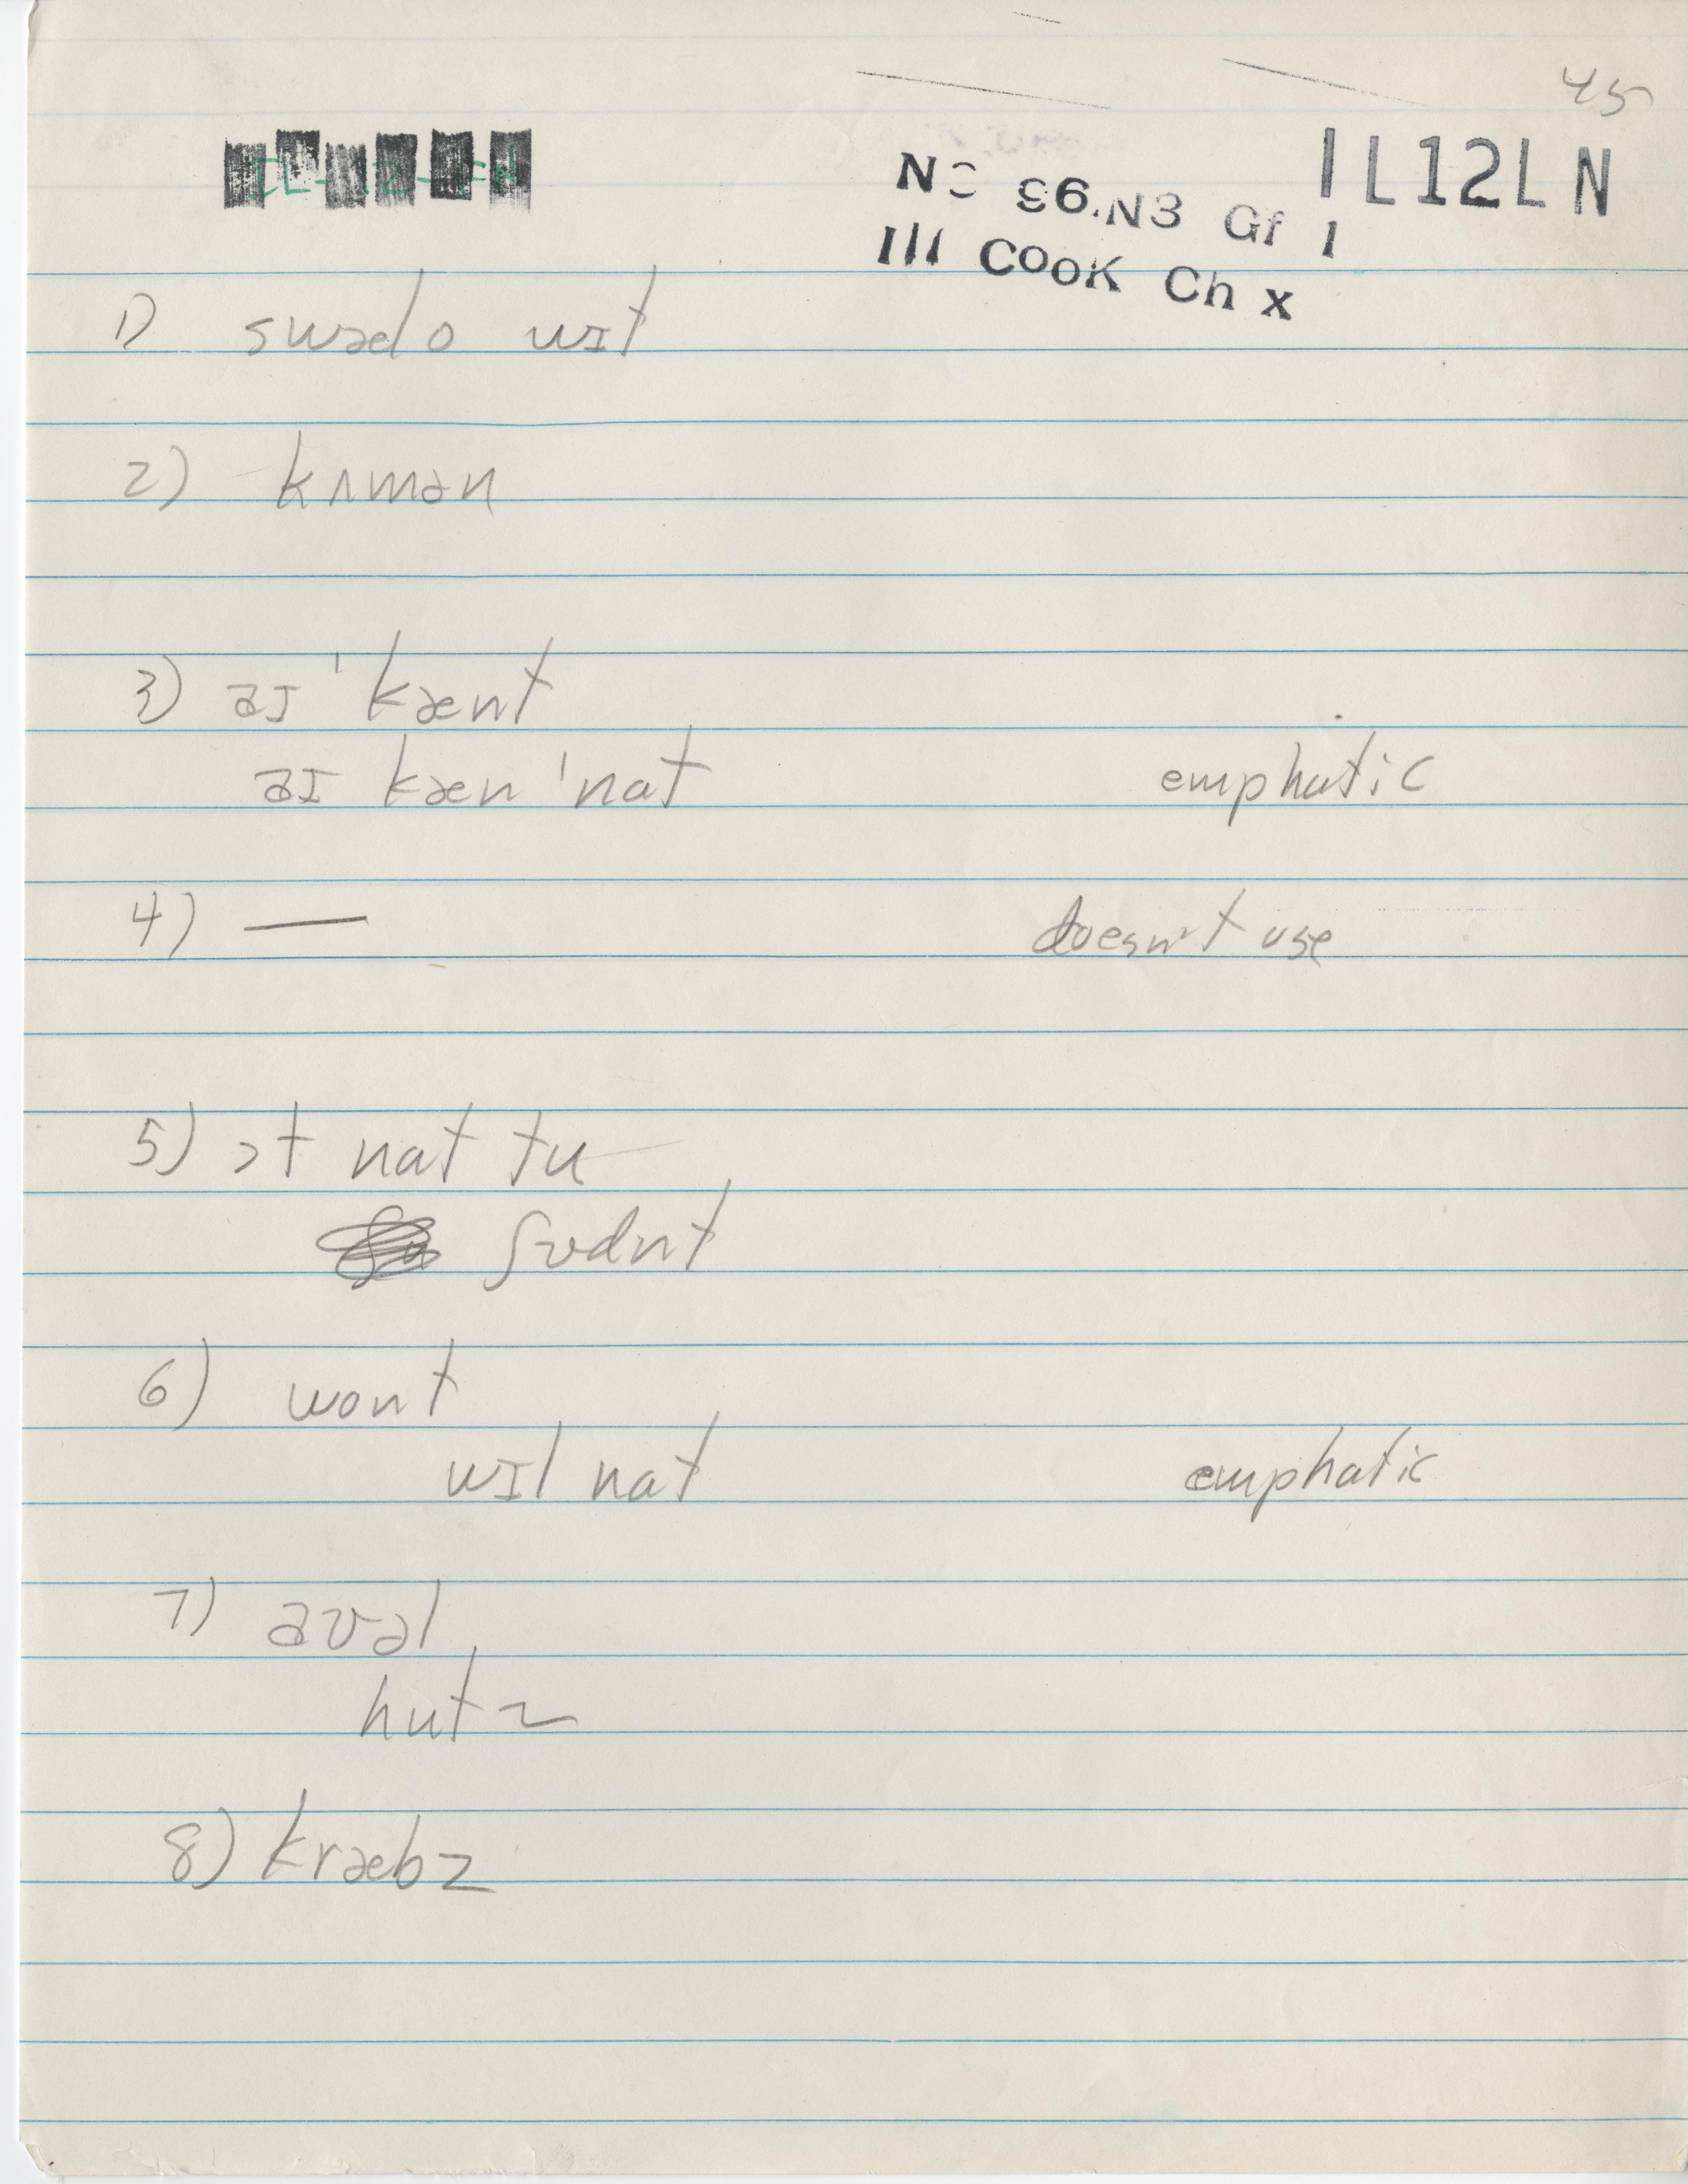 45
IL12LN
N3 96.N3 Gf 1
Ill Cook Ch x
1) swædo wɪt
2) kʌmən
3) aɪ ˈkænt
aɪ kæn ˈnat emphatic
4) — doesn't use
5) ɔt nat tu
ʃʊdnt
6) wont
wɪl nat emphatic
7) aʊəl
hut~
8) kræbz